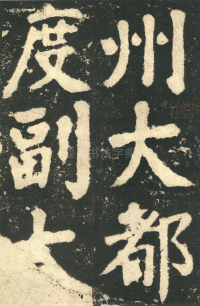 州大都
度副大